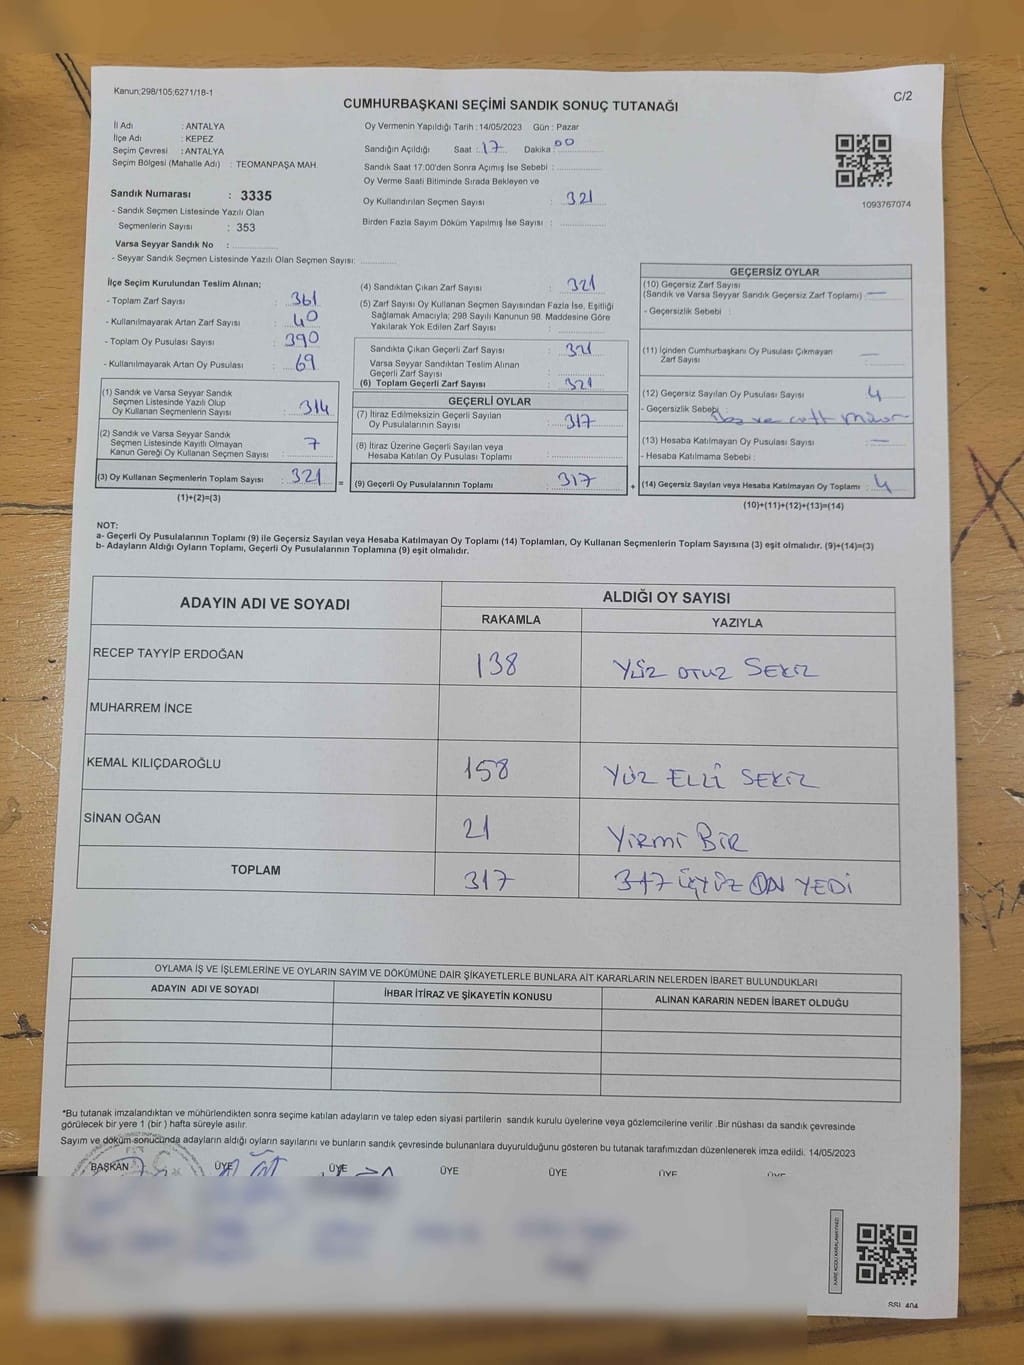 Kanun;298/105;6271/18-1
C/2
CUMHURBAŞKANI SEÇİMİ SANDIK SONUÇ TUTANAĞI
İl Adı : ANTALYA
İlçe Adı : KEPEZ
Seçim Çevresi : ANTALYA
Seçim Bölgesi (Mahalle Adı) : TEOMANPAŞA MAH.
Sandık Numarası : 3335
- Sandık Seçmen Listesinde Yazılı Olan
Seçmenlerin Sayısı : 353
Varsa Seyyar Sandık No :
- Seyyar Sandık Seçmen Listesinde Yazılı Olan Seçmen Sayısı:
Oy Vermenin Yapıldığı Tarih :14/05/2023 Gün : Pazar
Sandığın Açıldığı Saat : 17 Dakika 00
Sandık Saat 17:00'den Sonra Açımış İse Sebebi :
Oy Verme Saati Bitiminde Sırada Bekleyen ve
Oy Kullandırılan Seçmen Sayısı : 321
Birden Fazla Sayım Döküm Yapılmış İse Sayısı :
1093767074
İlçe Seçim Kurulundan Teslim Alınan;
- Toplam Zarf Sayısı : 361
- Kullanılmayarak Artan Zarf Sayısı : 40
- Toplam Oy Pusulası Sayısı : 390
- Kullanılmayarak Artan Oy Pusulası : 69
(1) Sandık ve Varsa Seyyar Sandık
Seçmen Listesinde Yazılı Olup
Oy Kullanan Seçmenlerin Sayısı : 314
(2) Sandık ve Varsa Seyyar Sandık
Seçmen Listesinde Kayıtlı Olmayan
Kanun Gereği Oy Kullanan Seçmen Sayısı : 7
(3) Oy Kullanan Seçmenlerin Toplam Sayısı : 321
(1)+(2)=(3)
(4) Sandıktan Çıkan Zarf Sayısı : 321
(5) Zarf Sayısı Oy Kullanan Seçmen Sayısından Fazla İse, Eşitliği
Sağlamak Amacıyla; 298 Sayılı Kanunun 98. Maddesine Göre
Yakılarak Yok Edilen Zarf Sayısı :
Sandıkta Çıkan Geçerli Zarf Sayısı : 321
Varsa Seyyar Sandıktan Teslim Alınan
Geçerli Zarf Sayısı :
(6) Toplam Geçerli Zarf Sayısı : 321
GEÇERLİ OYLAR
(7) İtiraz Edilmeksizin Geçerli Sayılan
Oy Pusulalarının Sayısı : 317
(8) İtiraz Üzerine Geçerli Sayılan veya
Hesaba Katılan Oy Pusulası Toplamı :
= (9) Geçerli Oy Pusulalarının Toplamı : 317
GEÇERSİZ OYLAR
(10) Geçersiz Zarf Sayısı
(Sandık ve Varsa Seyyar Sandık Geçersiz Zarf Toplamı) : —
- Geçersizlik Sebebi :
(11) İçinden Cumhurbaşkanı Oy Pusulası Çıkmayan
Zarf Sayısı : —
(12) Geçersiz Sayılan Oy Pusulası Sayısı : 4
- Geçersizlik Sebebi ve
(13) Hesaba Katılmayan Oy Pusulası Sayısı : —
- Hesaba Katılmama Sebebi :
+ (14) Geçersiz Sayılan veya Hesaba Katılmayan Oy Toplamı : 4
(10)+(11)+(12)+(13)=(14)
NOT:
a- Geçerli Oy Pusulalarının Toplamı (9) ile Geçersiz Sayılan veya Hesaba Katılmayan Oy Toplamı (14) Toplamları, Oy Kullanan Seçmenlerin Toplam Sayısına (3) eşit olmalıdır. (9)+(14)=(3)
b- Adayların Aldığı Oyların Toplamı, Geçerli Oy Pusulalarının Toplamına (9) eşit olmalıdır.
ADAYIN ADI VE SOYADI
ALDIĞI OY SAYISI
RAKAMLA YAZIYLA
RECEP TAYYİP ERDOĞAN 138 YÜZ OTUZ SEKİZ
MUHARREM İNCE
KEMAL KILIÇDAROĞLU 158 YÜZ ELLİ SEKİZ
SİNAN OĞAN 21 YİRMİ BİR
TOPLAM 317 317 ÜÇYÜZ ON YEDİ
OYLAMA İŞ VE İŞLEMLERİNE VE OYLARIN SAYIM VE DÖKÜMÜNE DAİR ŞİKAYETLERLE BUNLARA AİT KARARLARIN NELERDEN İBARET BULUNDUKLARI
ADAYIN ADI VE SOYADI İHBAR İTİRAZ VE ŞİKAYETİN KONUSU ALINAN KARARIN NEDEN İBARET OLDUĞU
*Bu tutanak imzalandıktan ve mühürlendikten sonra seçime katılan adayların ve talep eden siyasi partilerin sandık kurulu üyelerine veya gözlemcilerine verilir .Bir nüshası da sandık çevresinde
görülecek bir yere 1 (bir ) hafta süreyle asılır.
Sayım ve döküm sonucunda adayların aldığı oyların sayılarını ve bunların sandık çevresinde bulunanlara duyurulduğunu gösteren bu tutanak tarafımızdan düzenlenerek imza edildi. 14/05/2023
BAŞKAN ÜYE ÜYE ÜYE ÜYE ÜYE ÜYE
SSI 404